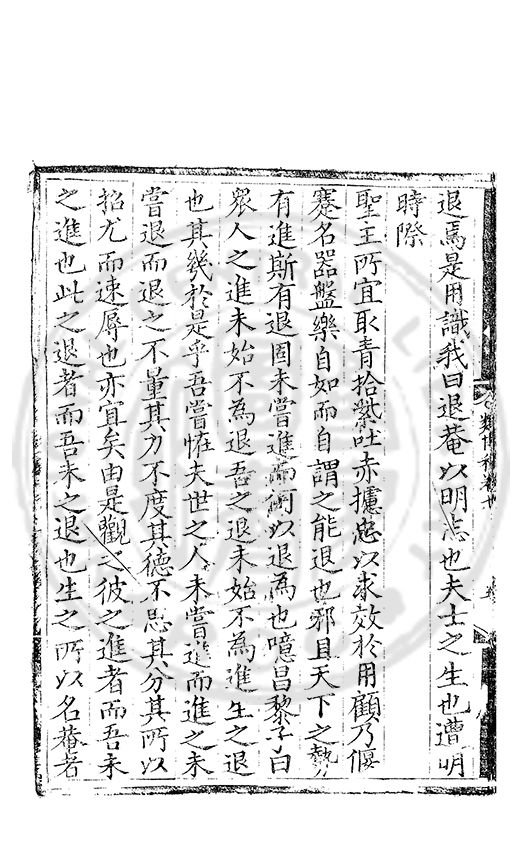 退焉是用識我曰退菴以明志也夫士之生也遭明
時際
聖主所宜取青拾紫吐赤攄忠以求效於用顧乃偃
蹇名器盤樂自如而自謂之能退也邪且天下之勢
有進斯有退固未嘗進而何以退為也噫昌黎子曰
衆人之進未始不為退吾之退未始不為進生之退
也其幾於是乎吾嘗恠夫世之人未嘗進而進之未
嘗退而退之不量其力不度其德不思其分其所以
招尤而速辱也亦宜矣由是觀之彼之進者而吾未
之進也此之退者而吾未之退也生之所以名菴者